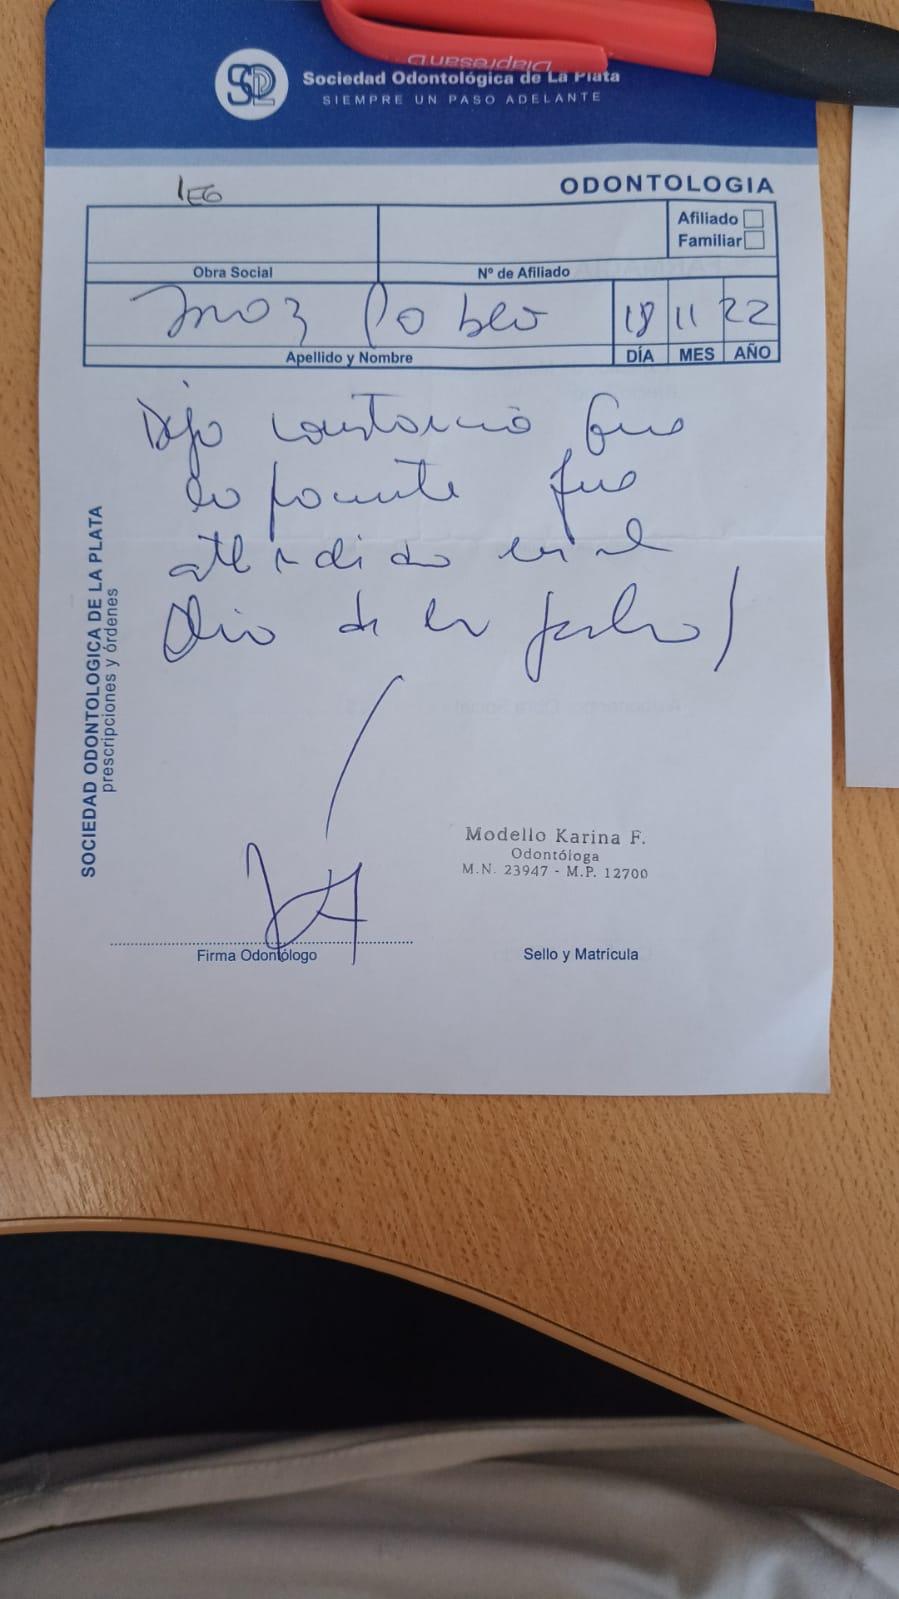 Sociedad Odontológica de La Plata
SIEMPRE UN PASO ADELANTE
ODONTOLOGIA
Afiliado
Familiar
Obra Social
Nº de Afiliado
Pablo 18 11 22
Apellido y Nombre DÍA MES AÑO
Dejo constancia que
la paciente fue
atendido en el
día de la fecha/
SOCIEDAD ODONTOLOGICA DE LA PLATA
prescripciones y órdenes
Modello Karina F.
Odontóloga
M.N. 23947 - M.P. 12700
Firma Odontólogo
Sello y Matrícula